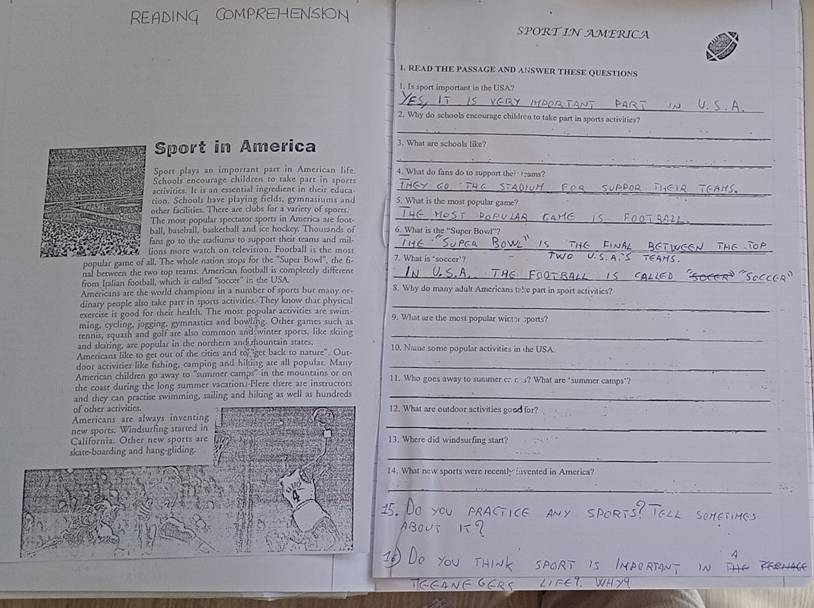 READING COMPREHENSION
Sport in America
Sport plays an important part in American life.
Schools encourage children to take part in sports
activities. It is an essential ingredient in their educa-
tion. Schools have playing fields, gymnasiums and
other facilities. There are clubs for a variety of sports.
The most popular spectator sports in America are foot-
ball, baseball, basketball and ice hockey. Thousands of
fans go to the stadiums to support their teams and mil-
lions more watch on television. Football is the most
popular game of all. The whole nation stops for the "Super Bowl", the fi-
nal between the two top teams. American football is completely different
from Italian football, which is called "soccer" in the USA.
Americans are the world champions in a number of sports but many or-
dinary people also take part in sports activities. They know that physical
exercise is good for their health. The most popular activities are swim-
ming, cycling, jogging, gymnastics and bowling. Other games such as
tennis, squash and golf are also common and winter sports, like skiing
and skating, are popular in the northern and mountain states.
Americans like to get out of the cities and to "get back to nature". Out-
door activities like fishing, camping and hiking are all popular. Many
American children go away to "summer camps" in the mountains or on
the coast during the long summer vacation. Here there are instructors
and they can practise swimming, sailing and hiking as well as hundreds
of other activities.
Americans are always inventing
new sports. Windsurfing started in
California. Other new sports are
skate-boarding and hang-gliding.
4
SPORT IN AMERICA
1. READ THE PASSAGE AND ANSWER THESE QUESTIONS
1. Is sport important in the USA?
YES, IT IS VERY IMPORTANT PART IN U.S.A.
2. Why do schools encourage children to take part in sports activities?
3. What are schools like?
4. What do fans do to support their teams?
THEY GO THE STADIUM FOR SUPPOR THEIR TEAMS.
5. What is the most popular game?
THE MOST POPULAR GAME IS FOOTBALL.
6. What is the "Super Bowl"?
THE "SUPER BOWL" IS THE FINAL BETWEEN THE TOP
TWO U.S.A.'S TEAMS.
7. What is "soccer"?
IN U.S.A. THE FOOTBALL IS CALLED "SOCER" "SOCCER"
8. Why do many adult Americans take part in sport activities?
9. What are the most popular winter sports?
10. Name some popular activities in the USA.
11. Who goes away to summer camps? What are "summer camps"?
12. What are outdoor activities good for?
13. Where did windsurfing start?
14. What new sports were recently invented in America?
15. Do YOU PRACTICE ANY SPORTS? TELL SOMETIMES
ABOUT IT?
16) Do YOU THINK SPORT IS IMPORTANT IN THE A
TEEANEGERS LIFE?. WHY?